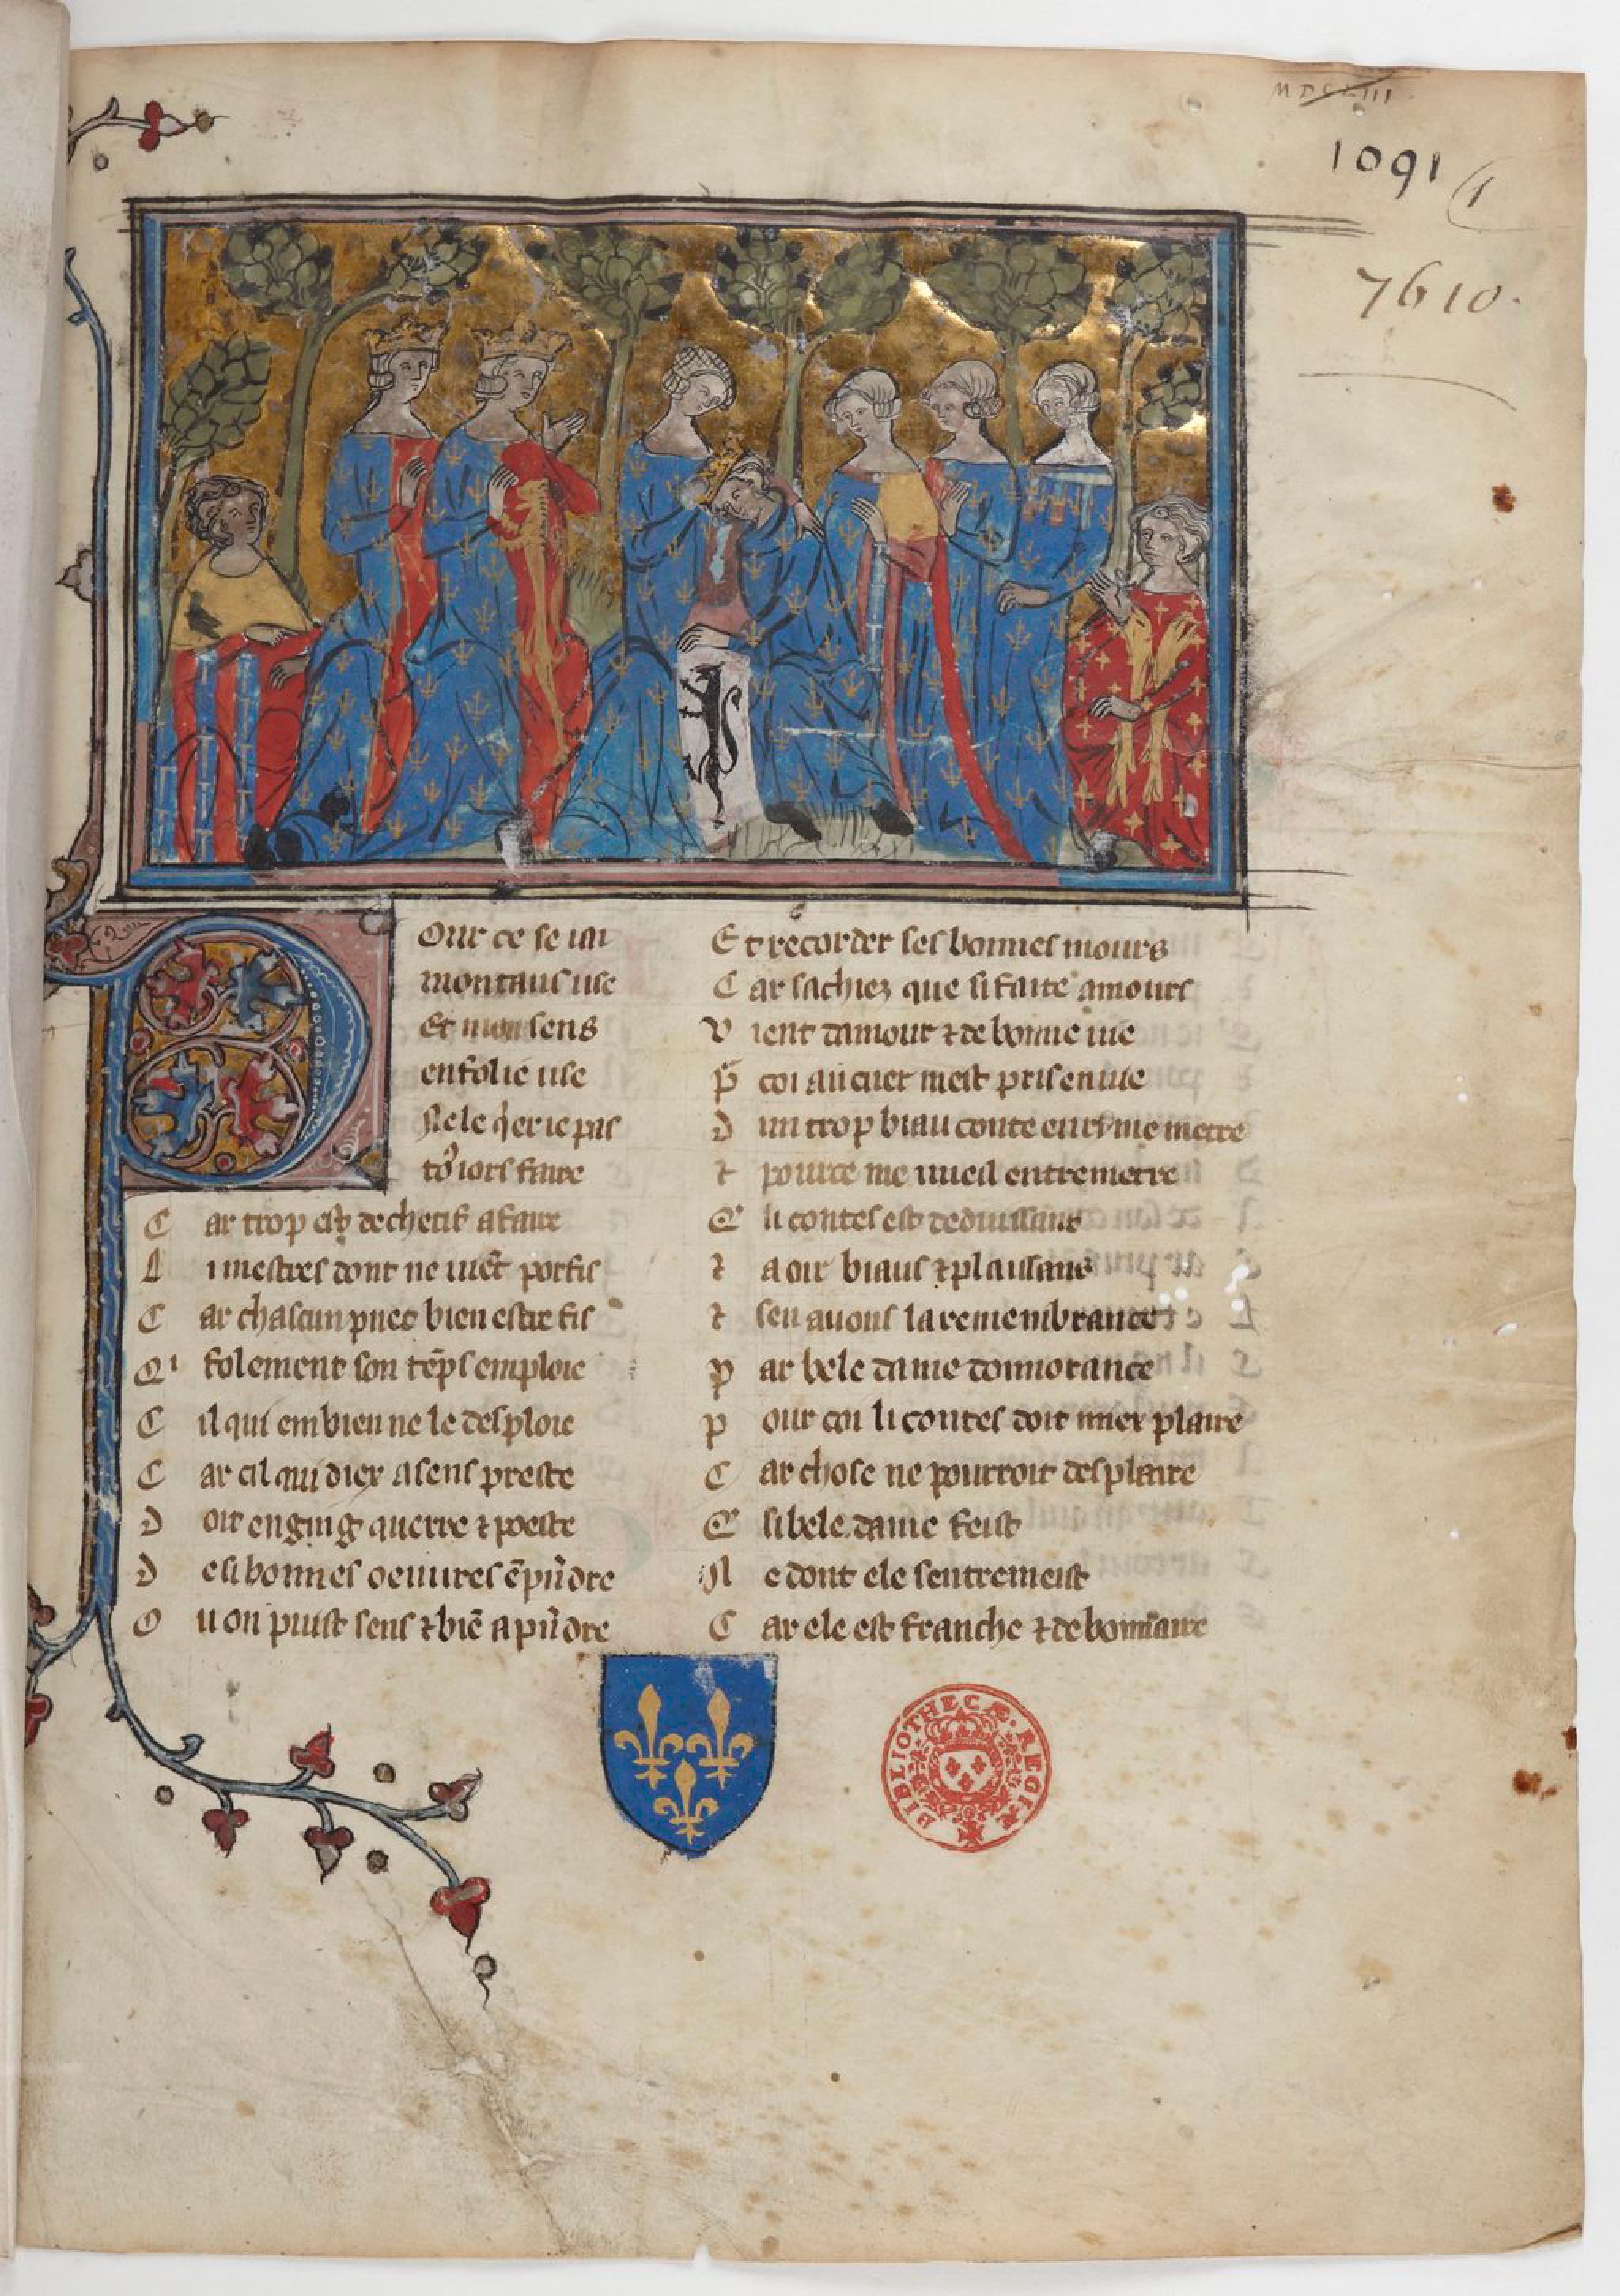 MDCLIII
1091
1
7610.
Pour ce se im
montans use
Et mon sens
en folie use
Ne le q̃erie pas
to᷑iors faire
C ar trop est de chetif afaire
L i mestres dont ne uiēt porfis
C ar chascun puet bien estre fis
Qi folement son tēps emploie
C il qui em bien ne le desploie
C ar cil qui diex a sens preste
D oit enging querre ⁊ poeste
D e si bonnes oeuures ēp̃ndre
O u on puist sens ⁊ biē ap̃ndre
E t recorder ses bonnes mours
C ar sachiez que si faite amours
V ient damour ⁊ de bonne uie
P̃ coi au cuer mest pris enuie
D un trop biau conte en rime metre
⁊ pour ce me uueil entremetre
Q̃ li contes est deduissans
⁊ a oir biaus ⁊ plaisans
⁊ sen auons la remembrance
P ar bele dame connorance
P our coi li contes doit miex plaire
C ar chose ne pourroit desplaire
Q̃ si bele dame feist
N e dont ele sentremeist
C ar ele est franche ⁊ debonnaire
BIBLIOTHECÆ REGIÆ